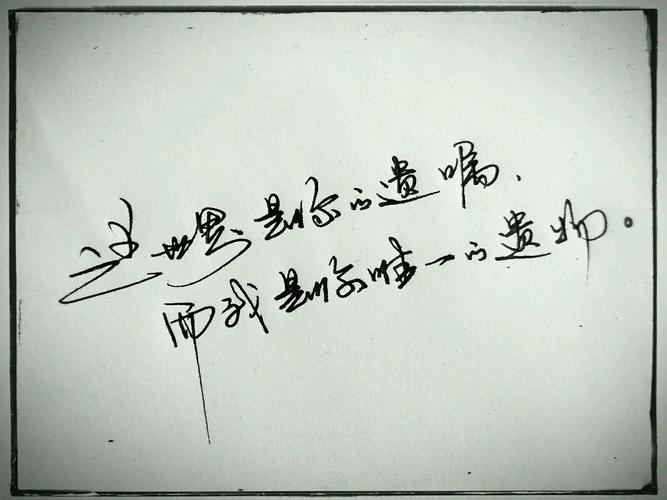 这世界是你的遗嘱,
而我是你唯一的遗物。